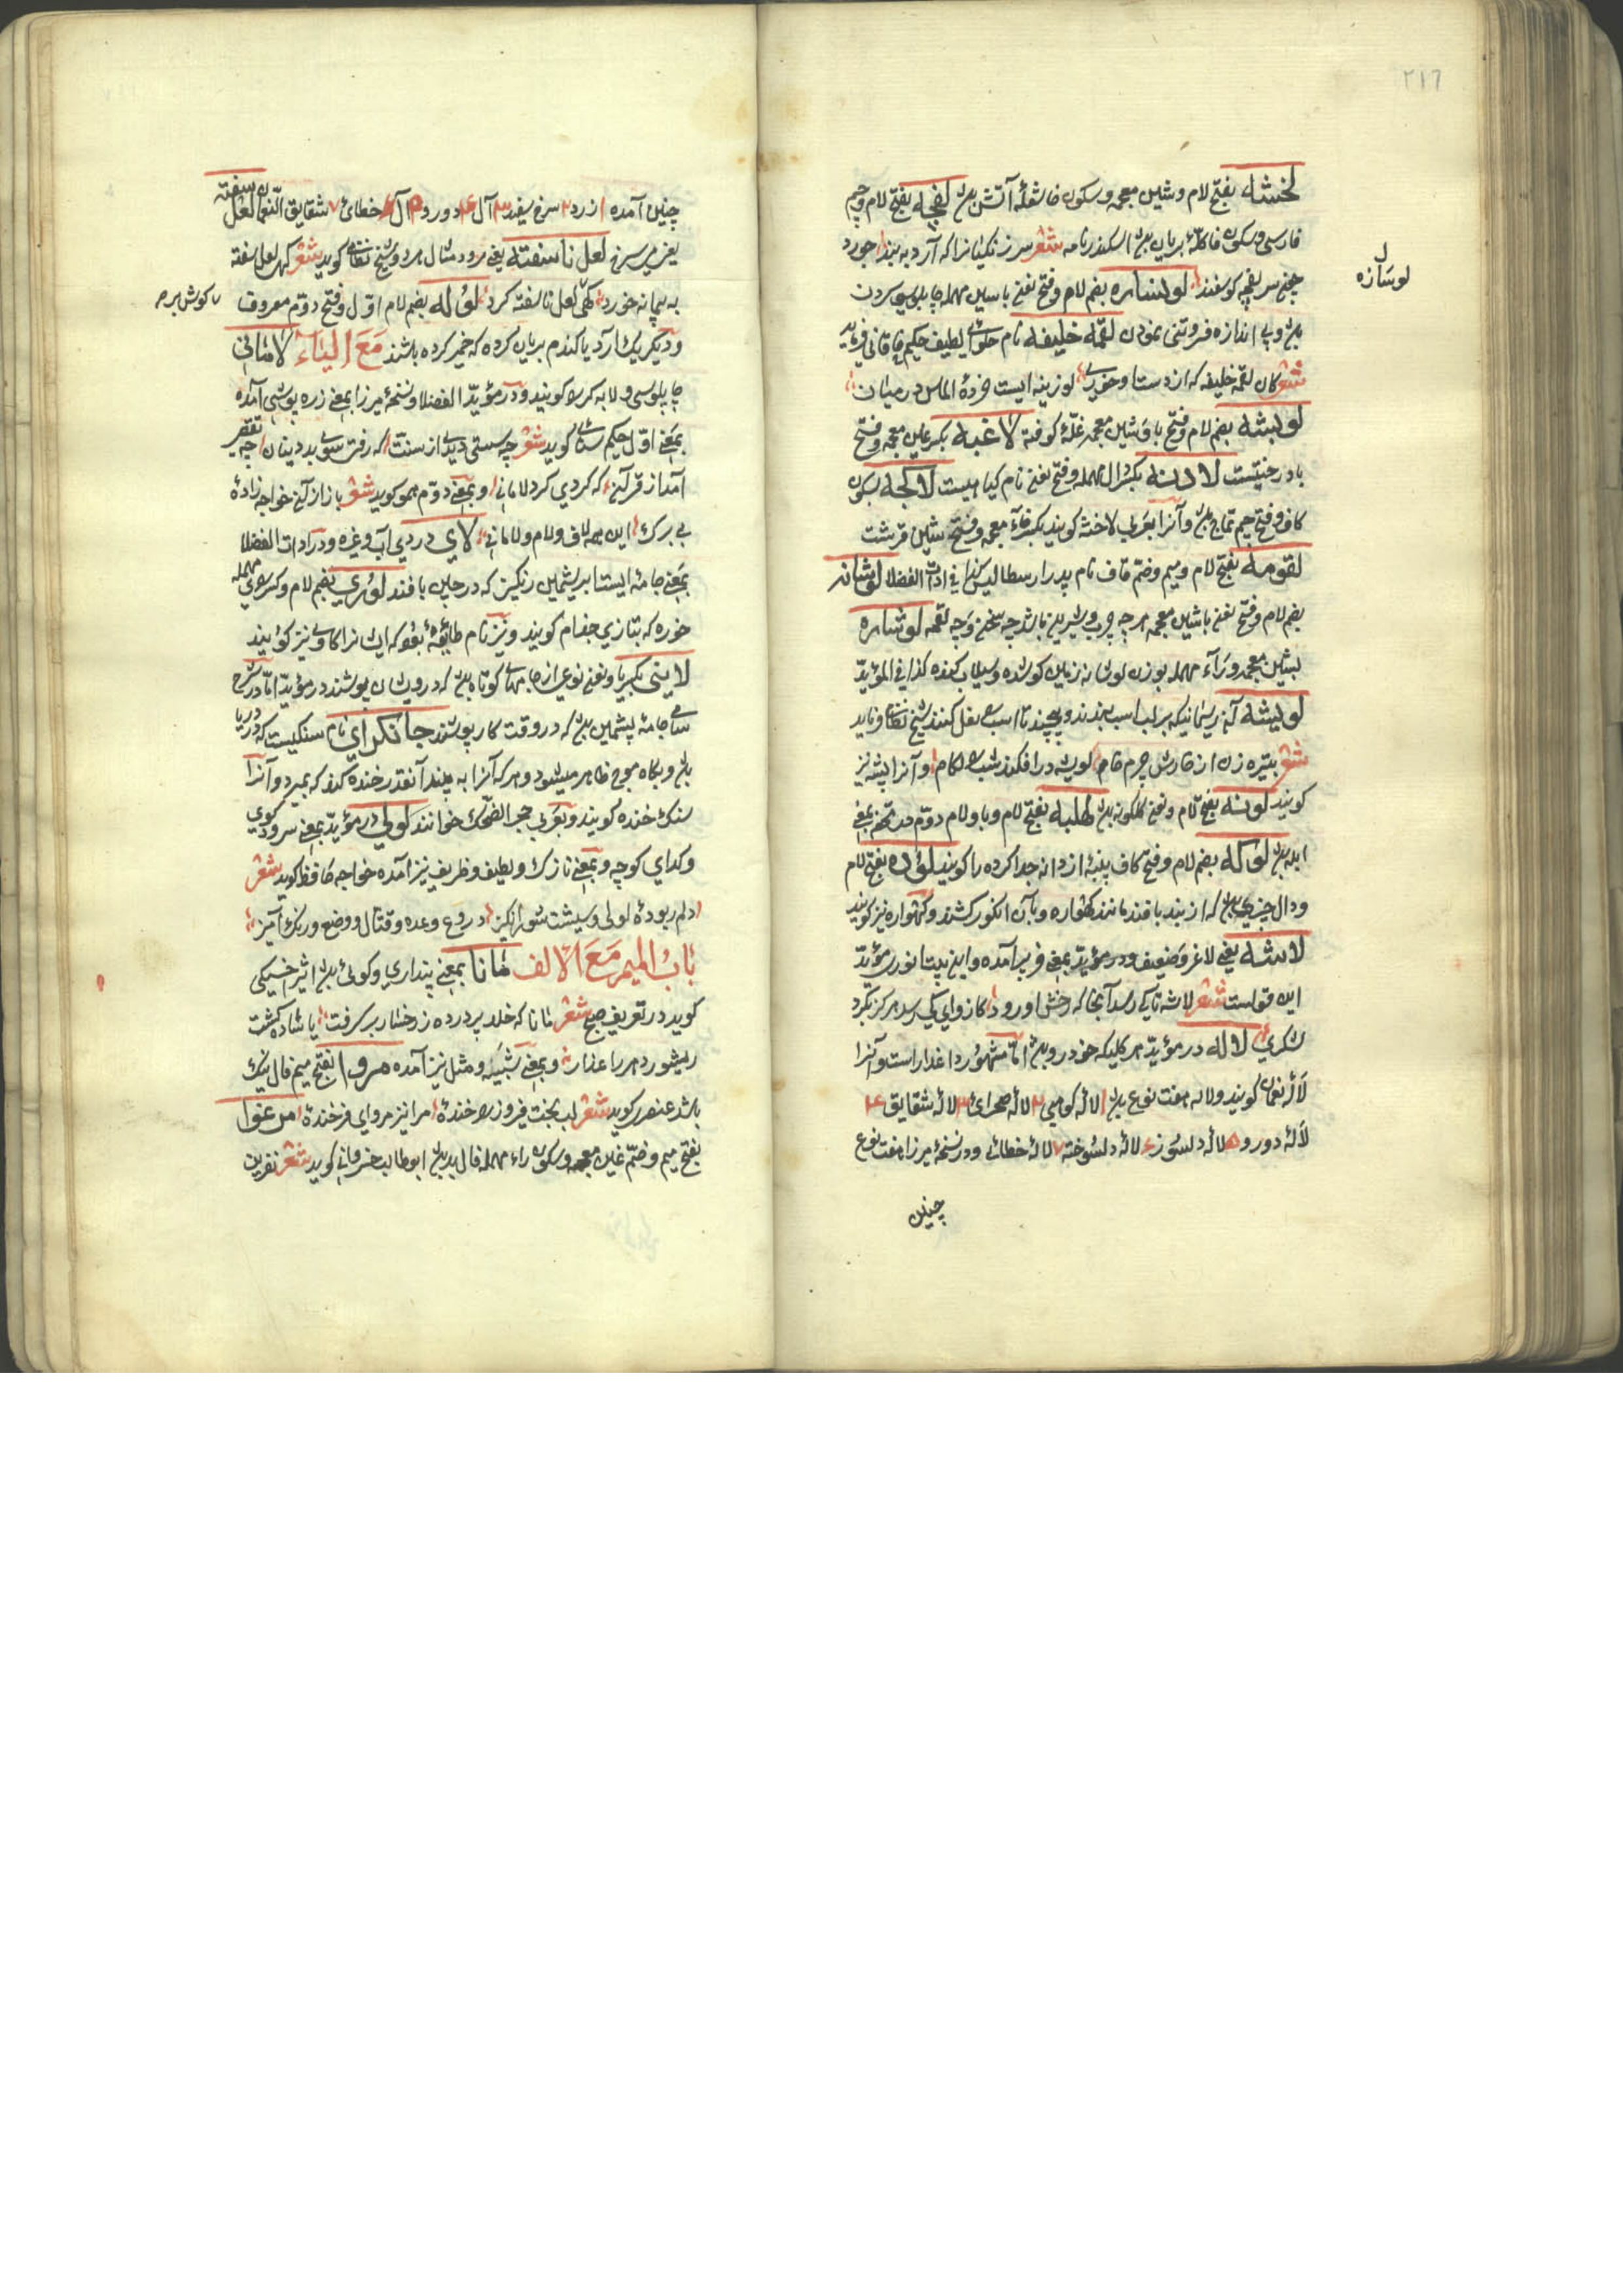 ٢١٦
لخشه بفتح لام و شین معجمه و سکون خا شعلهٔ آتش لفچه بفتح لام و جیم
فارسی و سکون فا کلهٔ بریان اسکندرنامه شعر سر زنکیانرا که آرد به بند خورد
چنین سر لفچه کوسفند لوساره بضم لام و فتح نغنی با سین مهمله چاپلوسی کردن
لوسازه
و بی اندازه فروتنی نمودن لقمه خلیفه نام حلوای لطیف حکیم خاقانی فرماید
شعر کان لقمه خلیفه که از دست او خوری لوزینه ایست خردهٔ الماس در میان
لوبشه بضم لام و فتح با و شین معجمه غلهٔ کوفته لاغیه بکسر غین معجمه و فتح
یا درختیست لادنه بکسر دال مهمله و فتح نغنی نام کیاهیست لاکچه بسکون
کاف و فتح جیم تتماج و آنرا بعربی لاخشه کویند بکسر خآء معجمه و فتح شین قرشت
لقومه بفتح لام و میم و ضم قاف نام پدر ارسطالیس کذا فی ادات الفضلا لوشانه
بضم لام و فتح نغنی با شین معجمه هر چه چرب و شیرین باشد چه سخن و چه لقمه لوشاره
بشین معجمه و رآء مهمله بوزن لوشانه زمین کو شده و سیلاب کنده کذا فی المؤید
لویشه آن ریسمانیکه بر لب اسب بندند و پیچند تا اسب را نعل کنند شیخ نظامی فرماید
کویند لونه بفتح لام و نغنی کلکونه لهلبه بفتح لام و با و لام دوم
ابله لوکه بضم لام و فتح کاف پنبهٔ از دانه جدا کرده را کویند لوده بفتح لام
و دال چیزی که از بند بافند مانند کهواره و بآن انکور کشند و کهواره نیز کویند
لاشه یعنی لاغر و ضعیف و در مؤید بمعنی فربه آمده و این بیت انوری مؤید
این قولست شعر لاشه تا کی رسد آنجا که رخش او رود کازوای کی رسد هرکز بکرد
لشکری لاله در مؤید هر کلیکه خودرو اما مشهور داغدار است و آنرا
لالهٔ نعمان کویند و لاله هفت نوع ١ لالهٔ کوهی ٢ لالهٔ صحرائی ٣ لالهٔ شقایق ۴
لالهٔ دورو ۵ لالهٔ دلسوز ۶ لالهٔ دلسوخته ٧ لالهٔ خطائی و در نسخهٔ میرزا هفت نوع
چنین
چنین آمده ١ زرد ٢ سرخ سفید ٣ آل ۴ دورو ۵ آل ۶ خطائی ٧ شقایق النعمان لعل سفته
یعنی سرخ لعل ناسفته یعنی سرود مثال هر دو شیخ نظامی کوید شعر کهی لعل سفته
به پیمانه خورد کهی لعل ناسفته کرد لوله بضم لام اول و فتح دوم معروف
و دیکر یک آرد یا کندم بریان کرده که خمیر کرده باشند مَعَ الیاء لامانی
چاپلوسی و لابه کری کویند و در مؤید الفضلا و نسخهٔ میرزا بمعنی زره پوشی آمده
بمعنی اول حکیم سنائی کوید شعر چه سستی دیدی از سنت که رفتی سوی بددینان چه تقصیر
آمد از قرآن که کردی کرد لامانی و بمعنی دوم همو کوید شعر باز از آن خواجه زادهٔ
بی برک این همه لاف و لام و لامانی لای دردی آب و غیره و در ادات الفضلا
بمعنی جامهٔ ایست ابریشمین رنکین که در چین بافند لوری بضم لام و کسر رای مهمله
خوره که بتازی جذام کویند و نیز نام طائفهٔ که ایشانرا کاولی نیز کویند
لاینی بکسر یا و نغنی نوعی از جامهای کوتاه که درویشان پوشند در مؤید اما در شرح
سامی جامهٔ پشمین که در وقت کار پوشند جانکزای نام سنکیست که در دریا
و بکاه موج ظاهر میشود و هر که آنرا به بیند آنقدر خنده کند که بمیرد و آنرا
سنک خنده کویند و بعربی حجر الضحک خوانند لولی در مؤید بمعنی سرود کوی
و کدای کوچه و بمعنی نازک و لطیف و ظریف نیز آمده خواجه حافظ کوید شعر
دلم ربودهٔ لولی وشیست شورانکیز دروغ وعده و قتال وضع و رنک آمیز
بابُ المیم مَعَ الالف مانا بمعنی پنداری و کوئی اثیر اخسیکتی
کوید در تعریف صبح شعر مانا که خلد پرده ز رخسار بر کرفت یا شاده کشت
و بمعنی شبیه و مثل نیز آمده مروا بفتح میم فال نیک
باشد عنصری کوید شعر لب بخت فیروز را خندهٔ مرا نیز مروای فرخندهٔ مرغوا
بفتح میم و ضم غین معجمه و سکون راء مهمله فال بد ابو طالب خسروانی کوید شعر نفرین